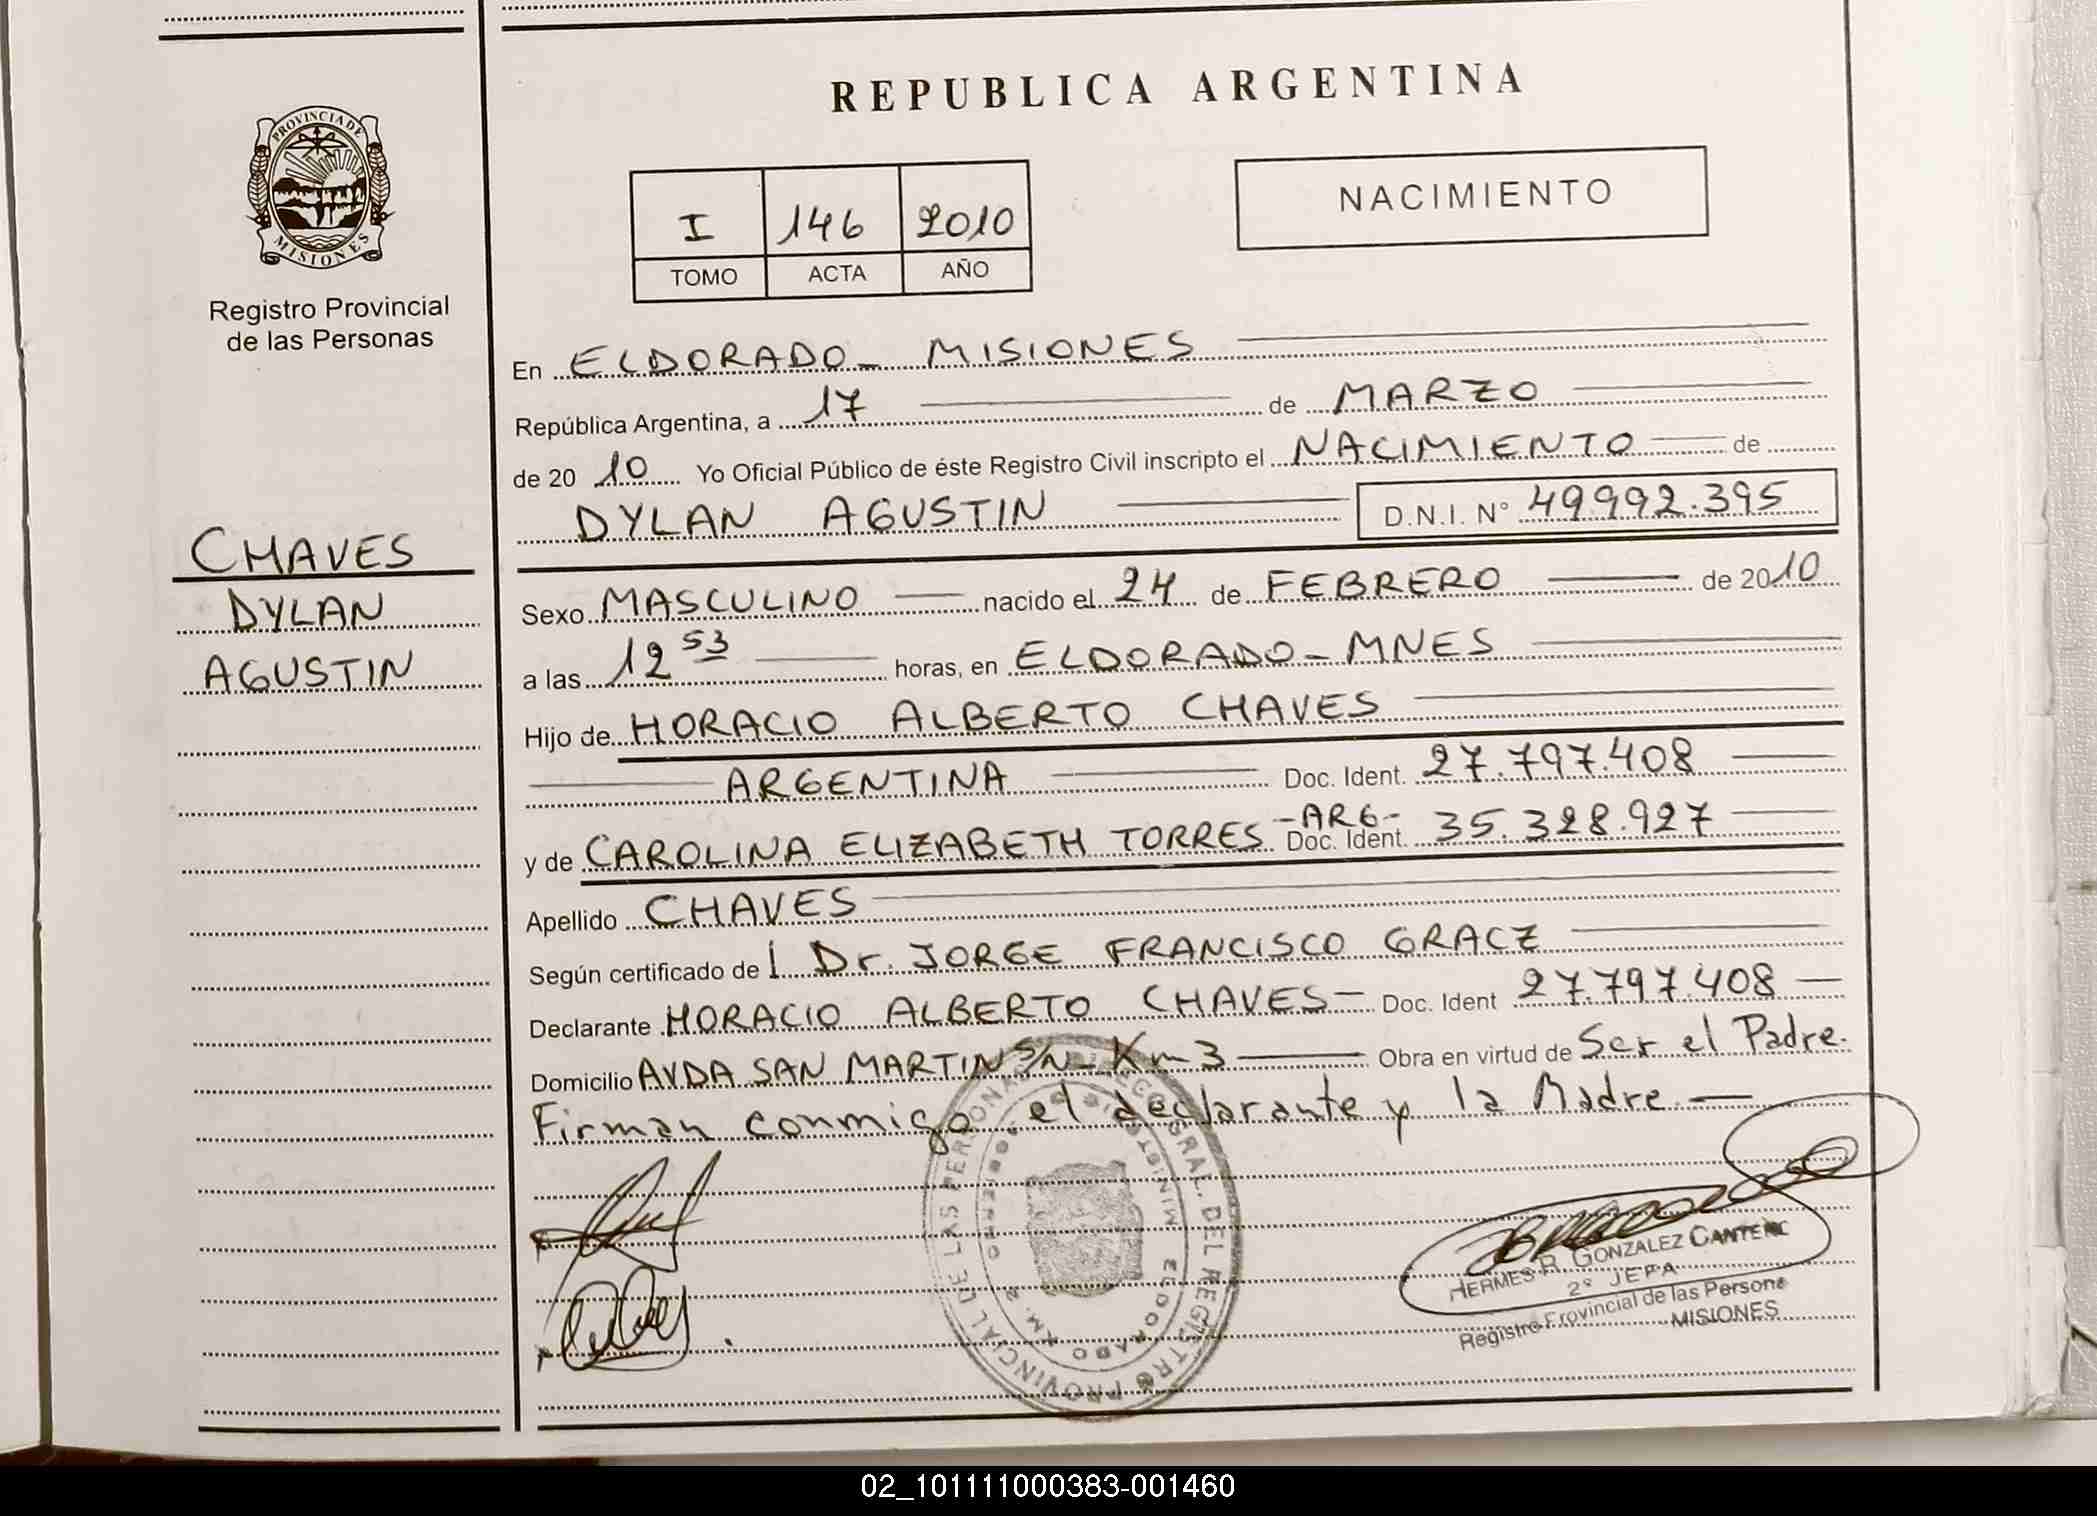 REPUBLICA ARGENTINA
PROVINCIA DE
MISIONES
Registro Provincial
de las Personas
I 146 2010
TOMO ACTA AÑO
NACIMIENTO
En ELDORADO - MISIONES
República Argentina, a 17 de MARZO
de 20 10 Yo Oficial Público de éste Registro Civil inscripto el NACIMIENTO de
DYLAN AGUSTIN D.N.I. N° 49.992.395
CHAVES
DYLAN
AGUSTIN
Sexo MASCULINO nacido el 24 de FEBRERO de 2010
a las 12 53 horas, en ELDORADO - MNES
Hijo de HORACIO ALBERTO CHAVES
ARGENTINA Doc. Ident. 27.797.408
y de CAROLINA ELIZABETH TORRES -ARG- Doc. Ident. 35.328.927
Apellido CHAVES
Según certificado de l Dr. JORGE FRANCISCO GRACZ
Declarante HORACIO ALBERTO CHAVES - Doc. Ident 27.797.408
Domicilio AVDA SAN MARTIN S/N - Km 3 Obra en virtud de Ser el Padre.
Firman conmigo el declarante y la Madre.
HERMES R. GONZALEZ
2° JEFA
Registro Provincial de las Persona
MISIONES
REGISTRO PROVINCIAL DE LAS PERSONAS
ELDORADO KM. 2
02_101111000383-001460